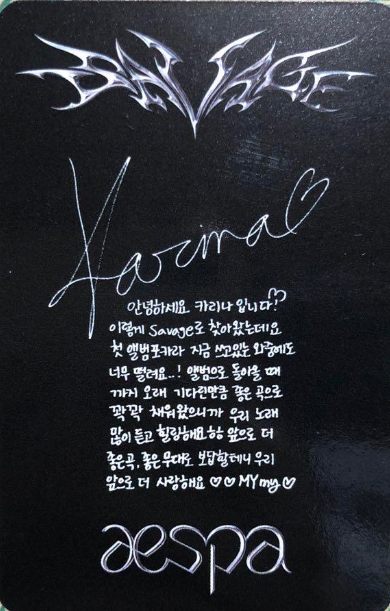 SAVAGE
Karina♡
안녕하세요 카리나 입니다!
이렇게 savage로 찾아왔는데요
첫 앨범포카라 지금 쓰고있는 와중에도
너무 떨려요..! 앨범으로 돌아올 때
까지 오래 기다린만큼 좋은 곡으로
꽉꽉 채워왔으니까 우리 노래
많이 듣고 힐링해요 하하 앞으로 더
좋은곡, 좋은무대로 보답할테니 우리
앞으로 더 사랑해요 ♡♡ MYmy♡
aespa